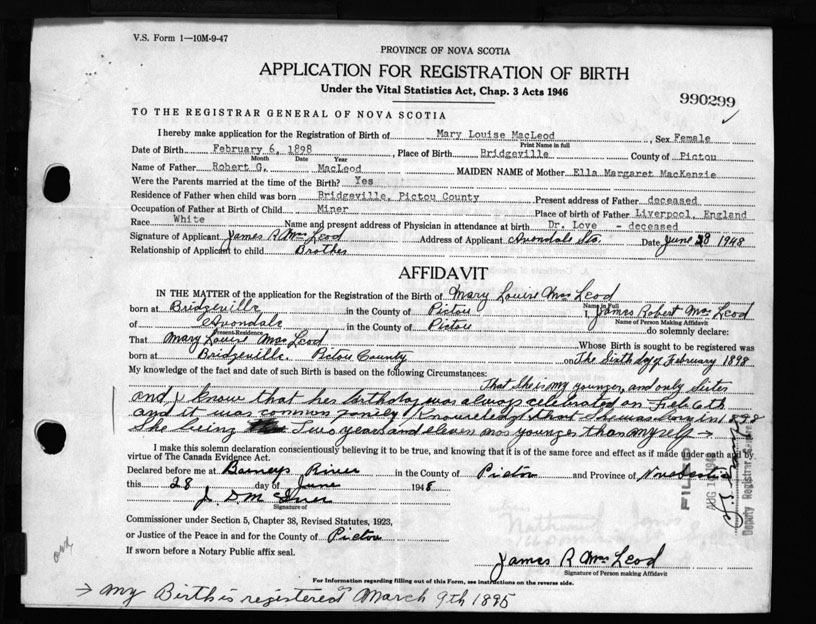 V.S. Form 1—10M-9-47
PROVINCE OF NOVA SCOTIA
APPLICATION FOR REGISTRATION OF BIRTH
Under the Vital Statistics Act, Chap. 3 Acts 1946
990299
TO THE REGISTRAR GENERAL OF NOVA SCOTIA
I hereby make application for the Registration of Birth of Mary Louise MacLeod, Sex Female
Print Name in full
Date of Birth February 6, 1898, Place of Birth Bridgeville County of Pictou
Month Date Year
Name of Father Robert G. MacLeod MAIDEN NAME of Mother Ella Margaret MacKenzie
Were the Parents married at the time of the Birth? Yes
Residence of Father when child was born Bridgeville, Pictou County Present address of Father deceased
Occupation of Father at Birth of Child Miner Place of birth of Father Liverpool, England
Race White Name and present address of Physician in attendance at birth Dr. Love - deceased
Signature of Applicant James R McLeod Address of Applicant Avondale Sta. Date June 28 1948
Relationship of Applicant to child Brother
AFFIDAVIT
IN THE MATTER of the application for the Registration of Birth of Mary Louise McLeod
Name in Full
born at Bridgeville in the County of Pictou I, James Robert McLeod
Name of Person Making Affidavit
of Avondale in the County of Pictou do solemnly declare:
Present Residence
That Mary Louise McLeod Whose Birth is sought to be registered was
born at Bridgeville. Pictou County on The Sixth day February 1898
My knowledge of the fact and date of such Birth is based on the following Circumstances:
That She is my younger, and only sister
and I know that her birthday was always celebrated on Feb 6th
and it was common family Knowledge that She was born in 1898
She being Two years and eleven mos younger than myself →
I make this solemn declaration conscientiously believing it to be true, and knowing that it is of the same force and effect as if made under oath and by
virtue of The Canada Evidence Act.
Declared before me at Barneys River in the County of Pictou and Province of Nova Scotia
this 28 day of June 1948
Signature of
FILED
Deputy Registrar
Commissioner under Section 5, Chapter 38, Revised Statutes, 1923,
or Justice of the Peace in and for the County of Pictou
If sworn before a Notary Public affix seal.
James R McLeod
Signature of Person making Affidavit
For Information regarding filling out of this Form, see instructions on the reverse side.
→ my Birth is registered March 9th 1895